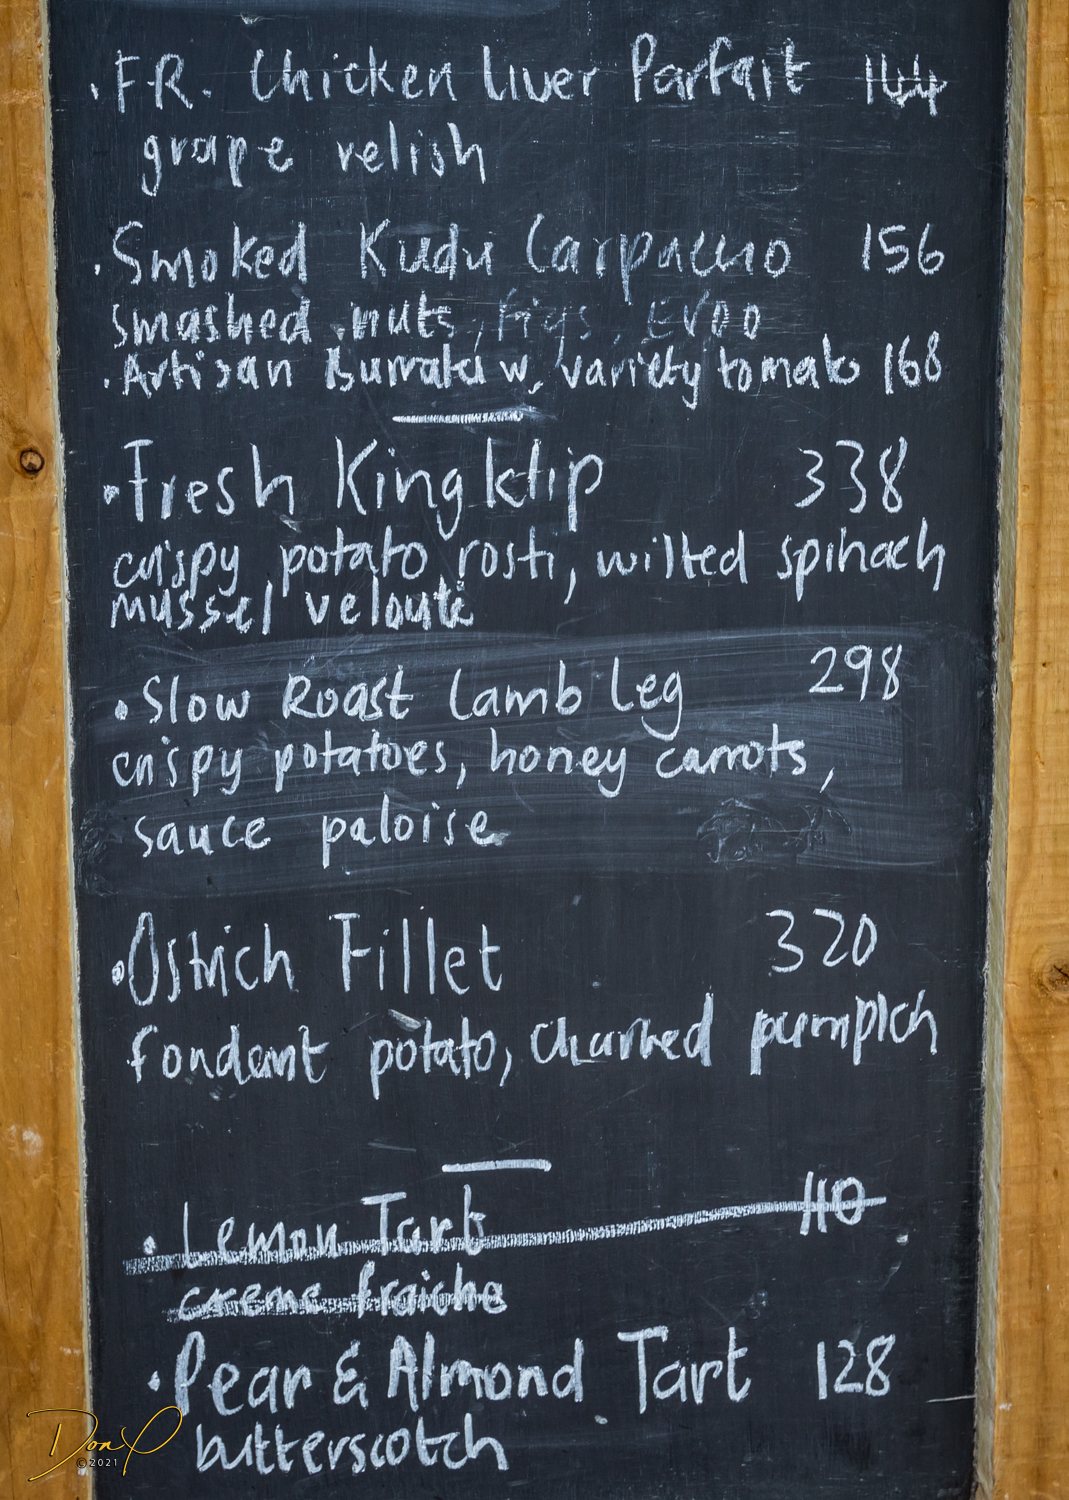 · F.R. Chicken Liver Parfait 144
grape relish
· Smoked Kudu Carpaccio 156
smashed nuts, figs, EVOO
· Artisan Burrata w, variety tomato 168
· Fresh King klip 338
crispy potato rosti, wilted spinach
mussel velouté
· Slow Roast Lamb Leg 298
crispy potatoes, honey carrots,
sauce paloise
· Ostrich Fillet 320
fondant potato, charred
· Lemon Tart 110
creme fraiche
· Pear & Almond Tart 128
butterscotch
Don P
©2021